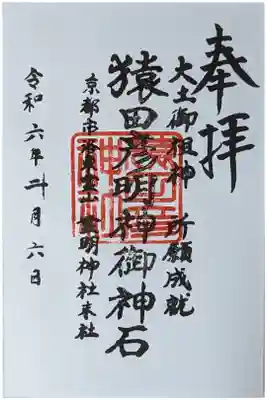 奉拝
大土御祖神 所願成就
猿田彦明神御神石
京都市
神明神社末社
令和六年二月六日